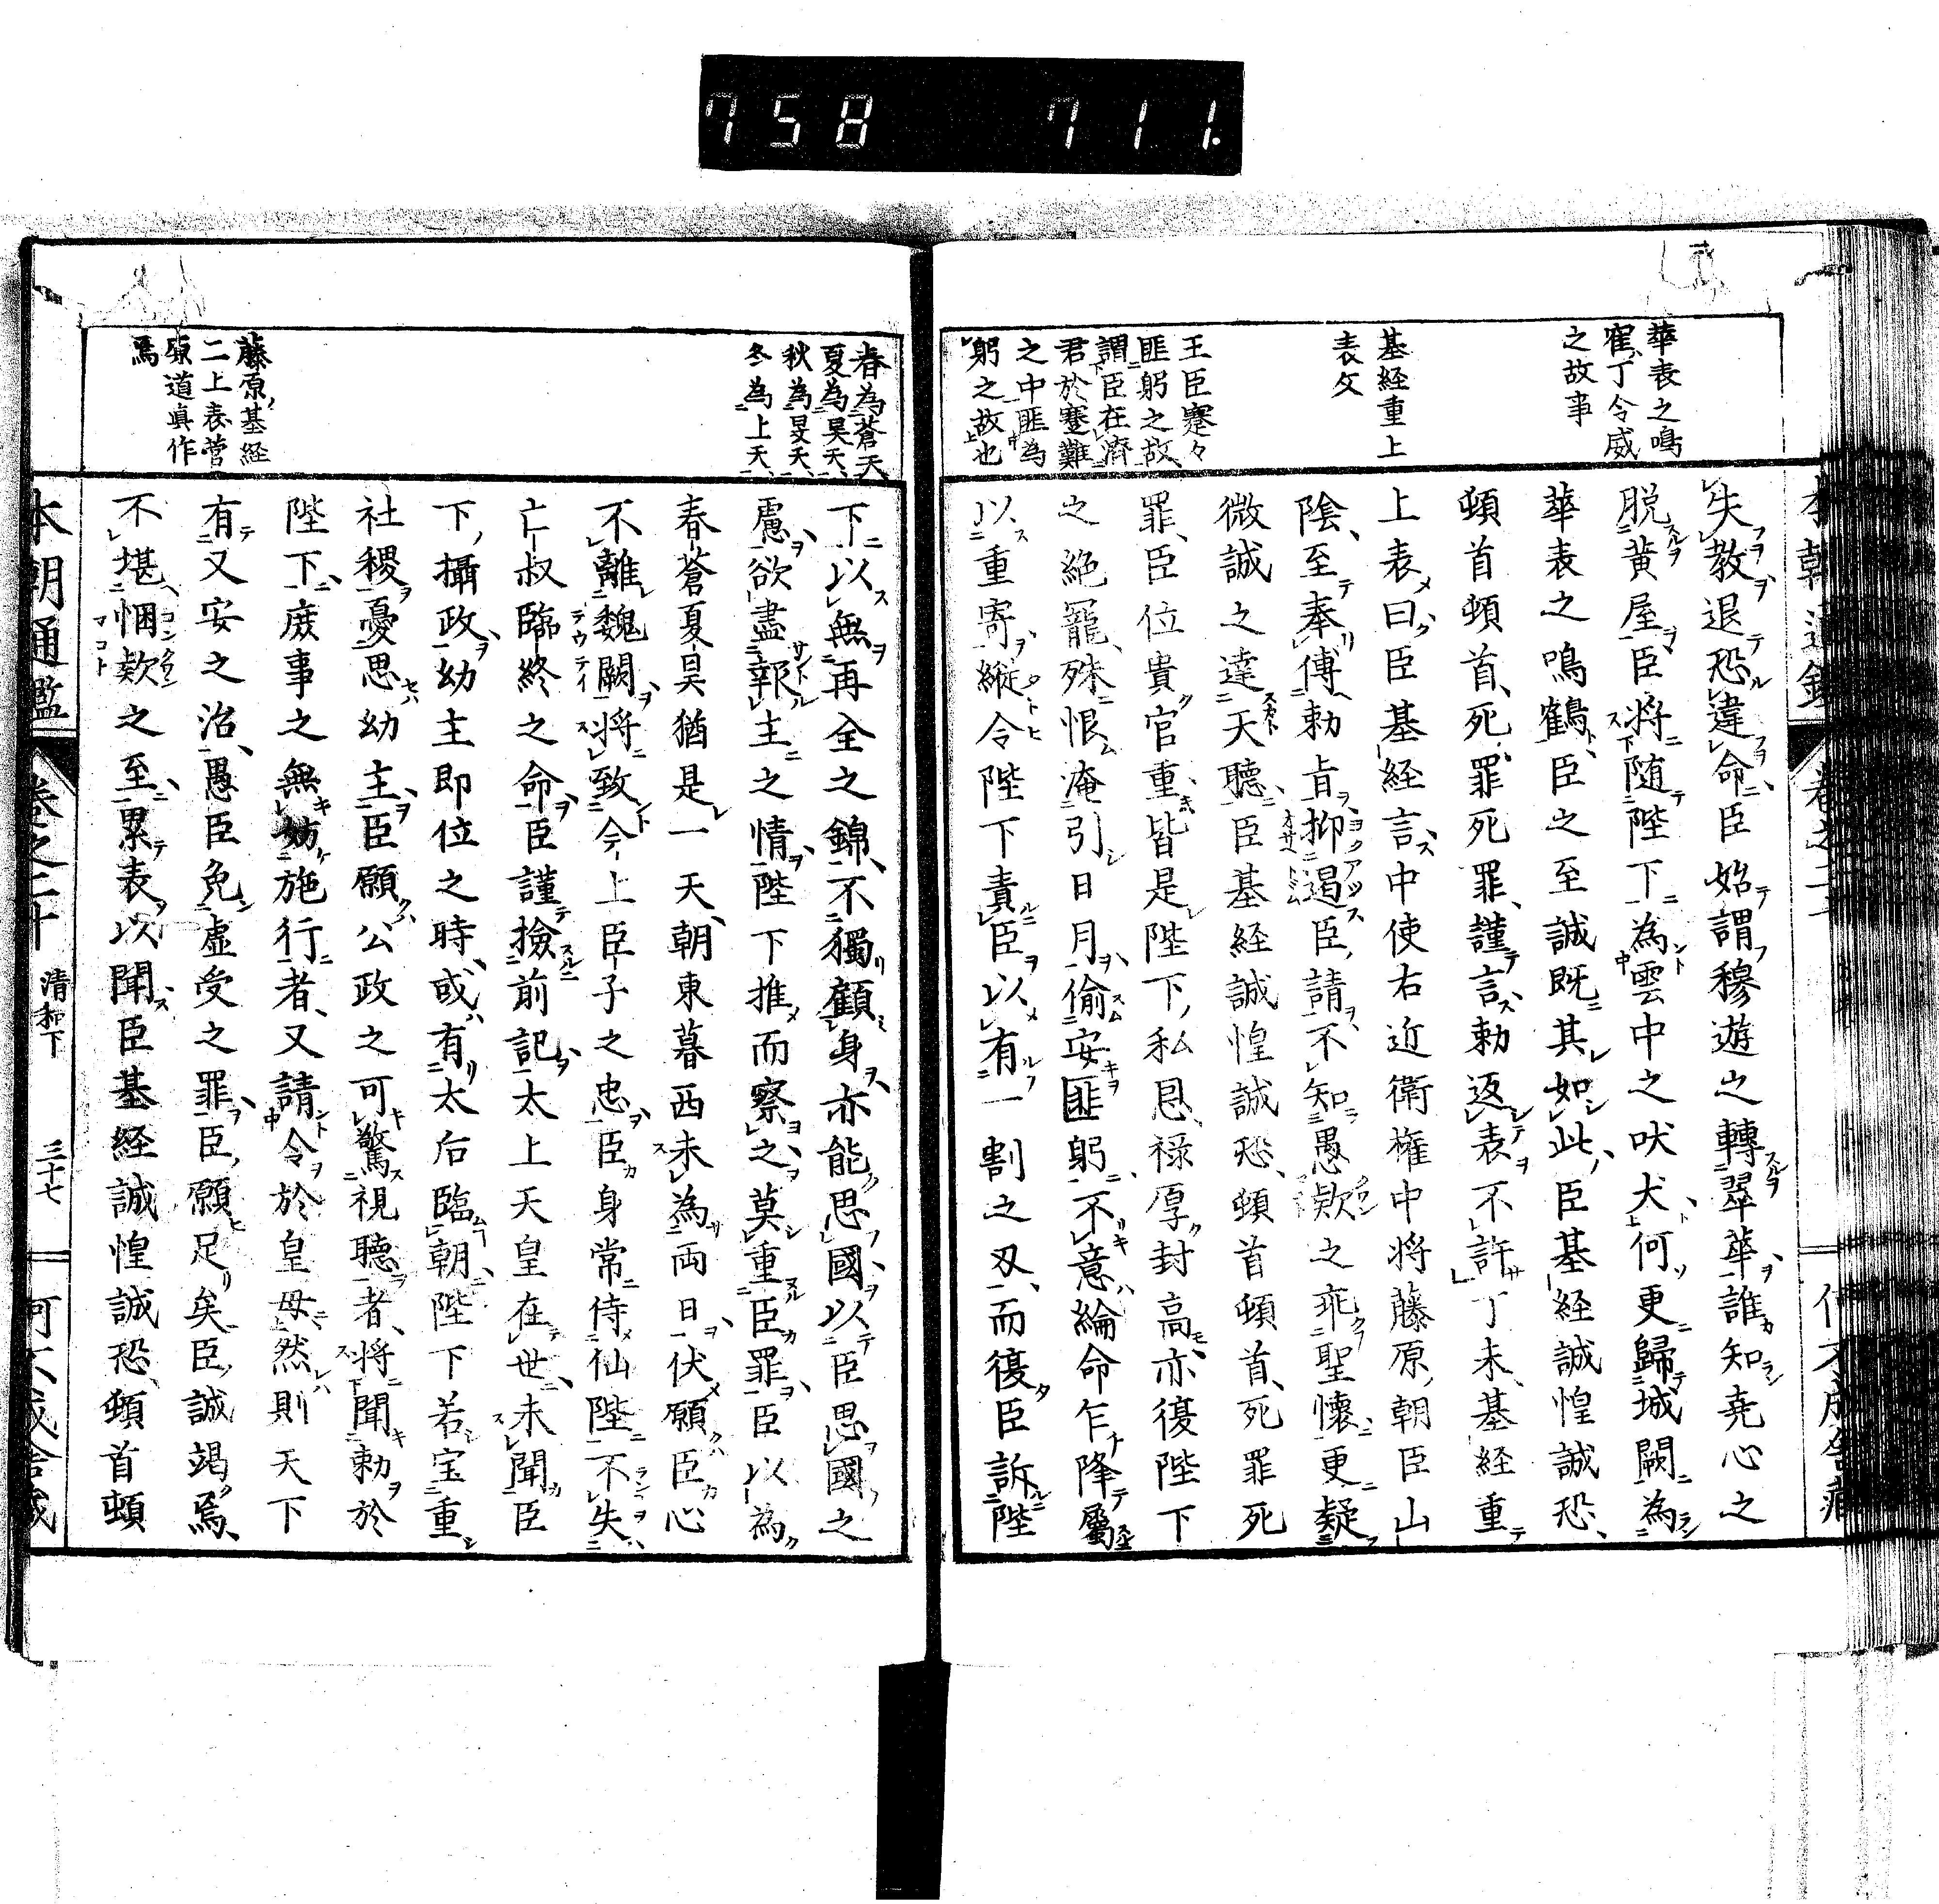 758 711.
華表之鳴
寉丁令威
之故事
基経重上
表文
王臣蹇々
匪躬之故
謂臣在濟
君於蹇難
之中匪為
躬之故也
失教退恐違命臣始謂穆遊之轉翠華誰知尭心之
脱黄屋臣将随陛下為雲中之吠犬何更歸城闕為
華表之鳴鶴臣之至誠既其如此臣基経誠惶誠恐
頓首頓首死罪死罪謹言勅返表不許丁未基経重
上表曰臣基経言中使右近衛権中将藤原朝臣山
陰至奉傳勅旨抑遏臣請不知愚欵之乖聖懐更疑
微誠之達天聴臣基経誠惶誠恐頓首頓首死罪死
罪臣位貴官重皆是陛下私恩禄厚封高亦復陛下
之絶寵殊恨淹引日月偷安匪躬不意綸命乍降属
以重寄縦令陛下責臣以有一割之刄而復臣訴陛
春為蒼天
夏為昊天
秋為旻天
冬為上天
藤原基経
二上表菅
原道真作
焉
下以無再全之錦不獨顧身亦能思國以臣思國之
慮欲盡報主之情陛下推而察之莫重臣罪臣以為
春蒼夏昊猶是一天朝東暮西未為両日伏願臣心
不離魏闕将致今上臣子之忠臣身常侍仙陛不失
亡叔臨終之命臣謹撿前記太上天皇在世未聞臣
下攝政幼主即位之時或有太后臨朝陛下若宝重
社稷憂思幼主臣願公政之可驚視聴者将聞勅於
陛下庶事之無妨施行者又請令於皇母然則天下
有又安之治愚臣免虚受之罪臣願足矣臣誠竭焉
不堪悃欵之至累表以聞臣基経誠惶誠恐頓首頓
本朝通鑑 巻之二十 清和下 三十七